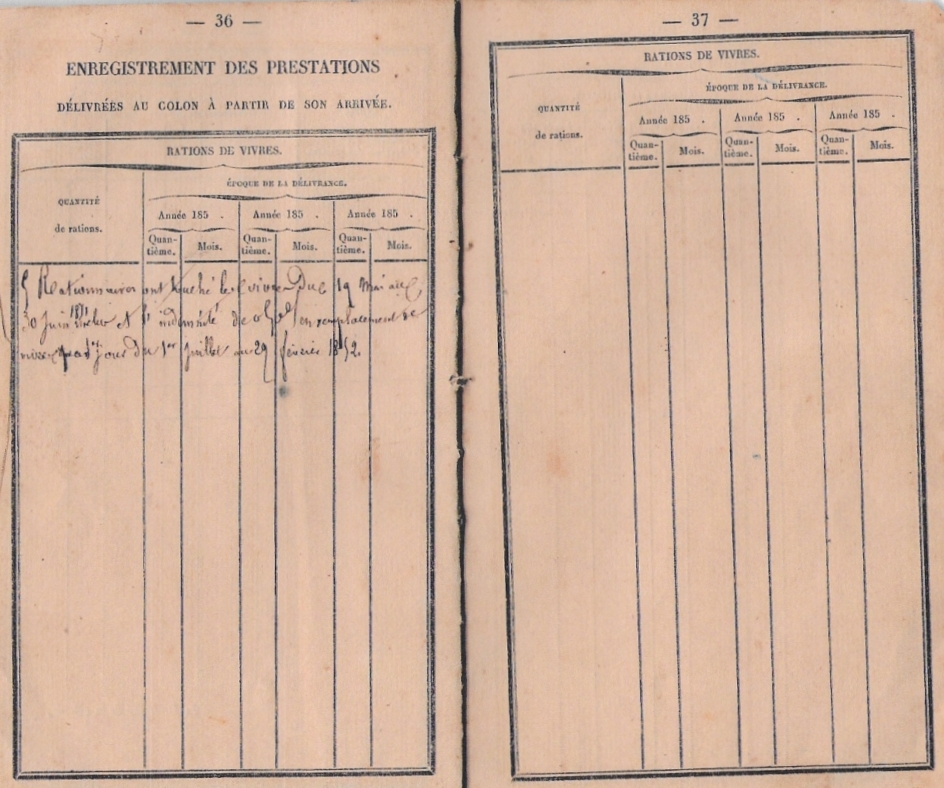 — 36 —
ENREGISTREMENT DES PRESTATIONS
DÉLIVRÉES AU COLON À PARTIR DE SON ARRIVÉE.
RATIONS DE VIVRES.
QUANTITÉ
de rations.
ÉPOQUE DE LA DÉLIVRANCE.
Année 185 . Année 185 . Année 185 .
Quan-
tième. Mois. Quan-
tième. Mois. Quan-
tième. Mois.
5 Rationnaires ont touché les vivres Du 19 Mai au
30 Juin 1851 et l'indemnité de en remplacement de
vivres jour du 1er Juillet au 29 février 1852.
— 37 —
RATIONS DE VIVRES.
QUANTITÉ
de rations.
ÉPOQUE DE LA DÉLIVRANCE.
Année 185 . Année 185 . Année 185 .
Quan-
tième. Mois. Quan-
tième. Mois. Quan-
tième. Mois.